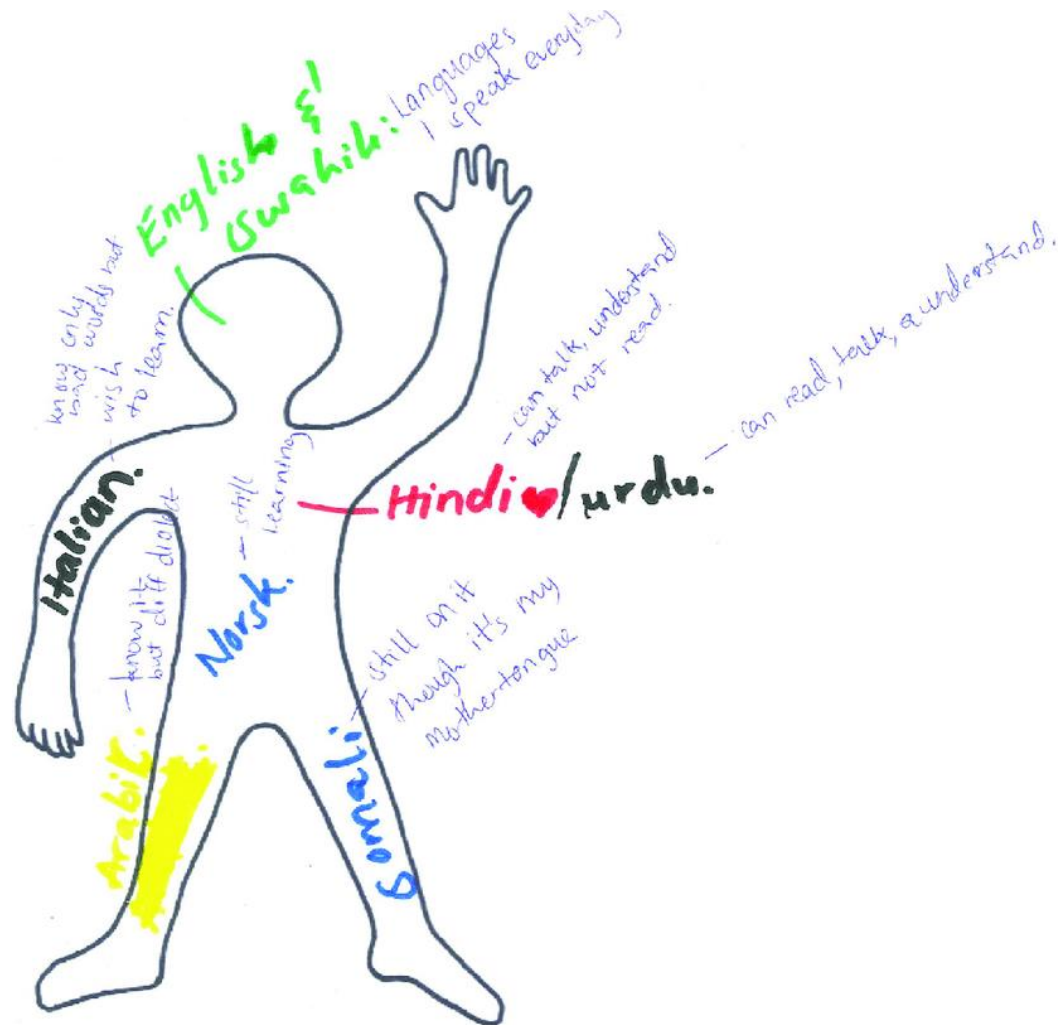 English &
Swahili:
Languages
I speak everyday
know only
bad words but
- wish
to learn.
Italian.
- can talk, understand
but not read.
Hindi ♥/urdu.
- can read, talk, & understand.
- still
learning
Norsk.
- know it
but diff dialect
Arabik.
- still on it
though it's my
mothertongue
Somali